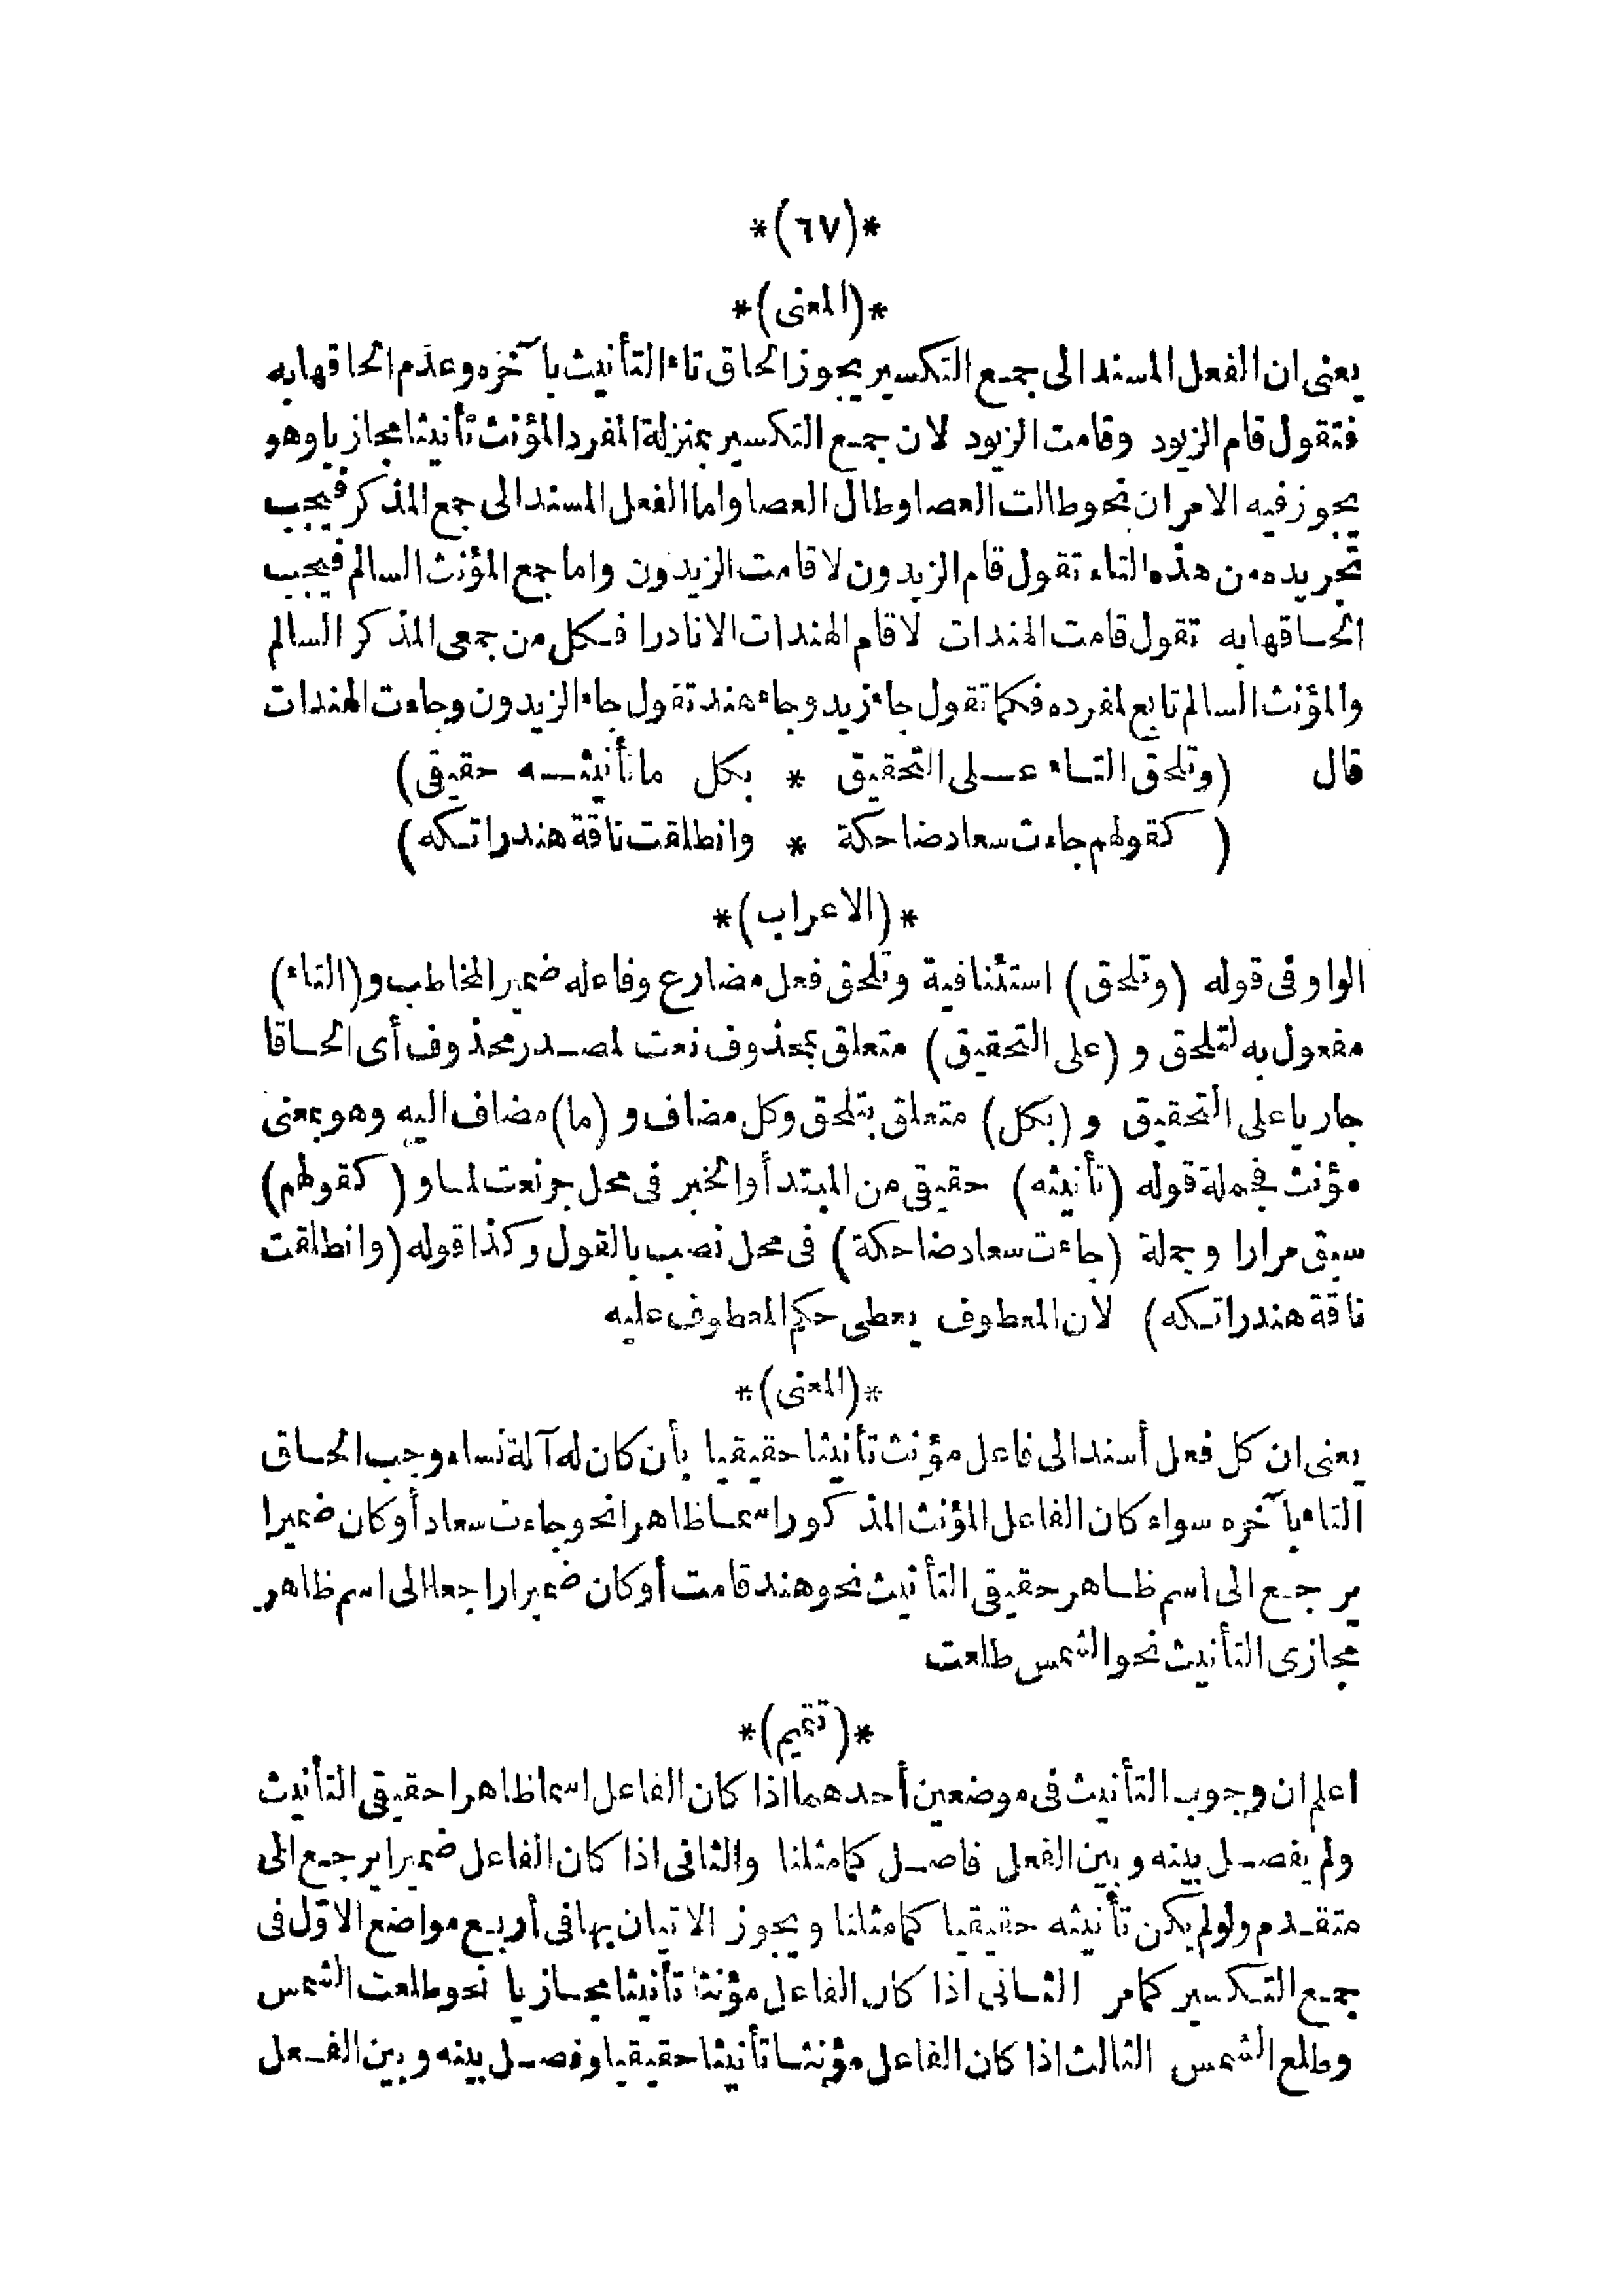 *(٦٧)*
*(المعنى)*
يعنى ان الفعل المسند الى جمع التكسير يجوز الحاق تاء التأنيث بآخره وعدم الحاقها به
فتقول قام الزيود وقامت الزيود لان جمع التكسير بمنزلة المفرد المؤنث تأنيثا مجازيا وهو
يجوز فيه الامران نحو طالت العصا وطال العصا واما الفعل المسند الى جمع المذكر فيجب
تجريده من هذه التاء تقول قام الزيدون لا قامت الزيدون واما جمع المؤنث السالم فيجب
الحاقها به تقول قامت الهندات لا قام الهندات الا نادرا فكل من جمعى المذكر السالم
والمؤنث السالم تابع لمفرده فكما تقول جاء زيد وجاء هند تقول جاء الزيدون وجاءت الهندات
قال (وتلحق التاء على التحقيق * بكل ما تأنيثه حقيقى)
(كقولهم جاءت سعاد ضاحكة * وانطلقت ناقة هند راتكه)
*(الاعراب)*
الواو فى قوله (وتلحق) استئنافية وتلحق فعل مضارع وفاعله ضمير المخاطب و(التاء)
مفعول به لتلحق و (على التحقيق) متعلق بمحذوف نعت لمصدر محذوف أى الحاقا
جاريا على التحقيق و (بكل) متعلق بتلحق وكل مضاف و (ما) مضاف اليه وهو بمعنى
مؤنث فجملة قوله (تأنيثه) حقيقى من المبتدأ والخبر فى محل جر نعت لما و (كقولهم)
سبق مرارا وجملة (جاءت سعاد ضاحكة) فى محل نصب بالقول وكذا قوله (وانطلقت
ناقة هند راتكه) لان المعطوف يعطى حكم المعطوف عليه
*(المعنى)*
يعنى ان كل فعل أسند الى فاعل مؤنث تأنيثا حقيقيا بأن كان له آلة نساء وجب الحاق
التاء بآخره سواء كان الفاعل المؤنث المذكور اسما ظاهرا نحو جاءت سعاد أو كان ضميرا
يرجع الى اسم ظاهر حقيقى التأنيث نحو هند قامت أو كان ضميرا راجعا الى اسم ظاهر
مجازى التأنيث نحو الشمس طلعت
*(تتميم)*
اعلم ان وجوب التأنيث فى موضعين أحدهما اذا كان الفاعل اسما ظاهرا حقيقى التأنيث
ولم يفصل بينه وبين الفعل فاصل كما مثلنا والثانى اذا كان الفاعل ضميرا يرجع الى
متقدم ولو لم يكن تأنيثه حقيقيا كما مثلنا ويجوز الاتيان بها فى أربع مواضع الاوّل فى
جمع التكسير كما مر الثانى اذا كان الفاعل مؤنثا تأنيثا مجازيا نحو طلعت الشمس
وطلع الشمس الثالث اذا كان الفاعل مؤنثا تأنيثا حقيقيا وفصل بينه وبين الفعل